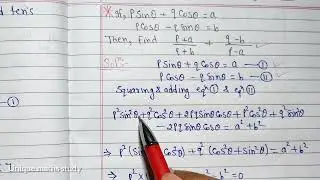 ten's
* If, pSinθ + qCosθ = a
pCosθ - qSinθ = b
Then, Find (p+a)/(q+b) + (q-b)/(p-a)
Solⁿ:-
pSinθ + qCosθ = a —Ⓘ
pCosθ - qSinθ = b —ⒾⒾ
Squaring & adding eqⁿ Ⓘ & eqⁿ Ⓘ
p²sin²θ + q²cos²θ + 2pqsinθcosθ + p²cos²θ + q²sin²θ
- 2pqsinθcosθ = a² + b²
⇒ p²(sin²θ + cos²θ) + q²(cos²θ + sin²θ) = a² + b²
Unique maths study